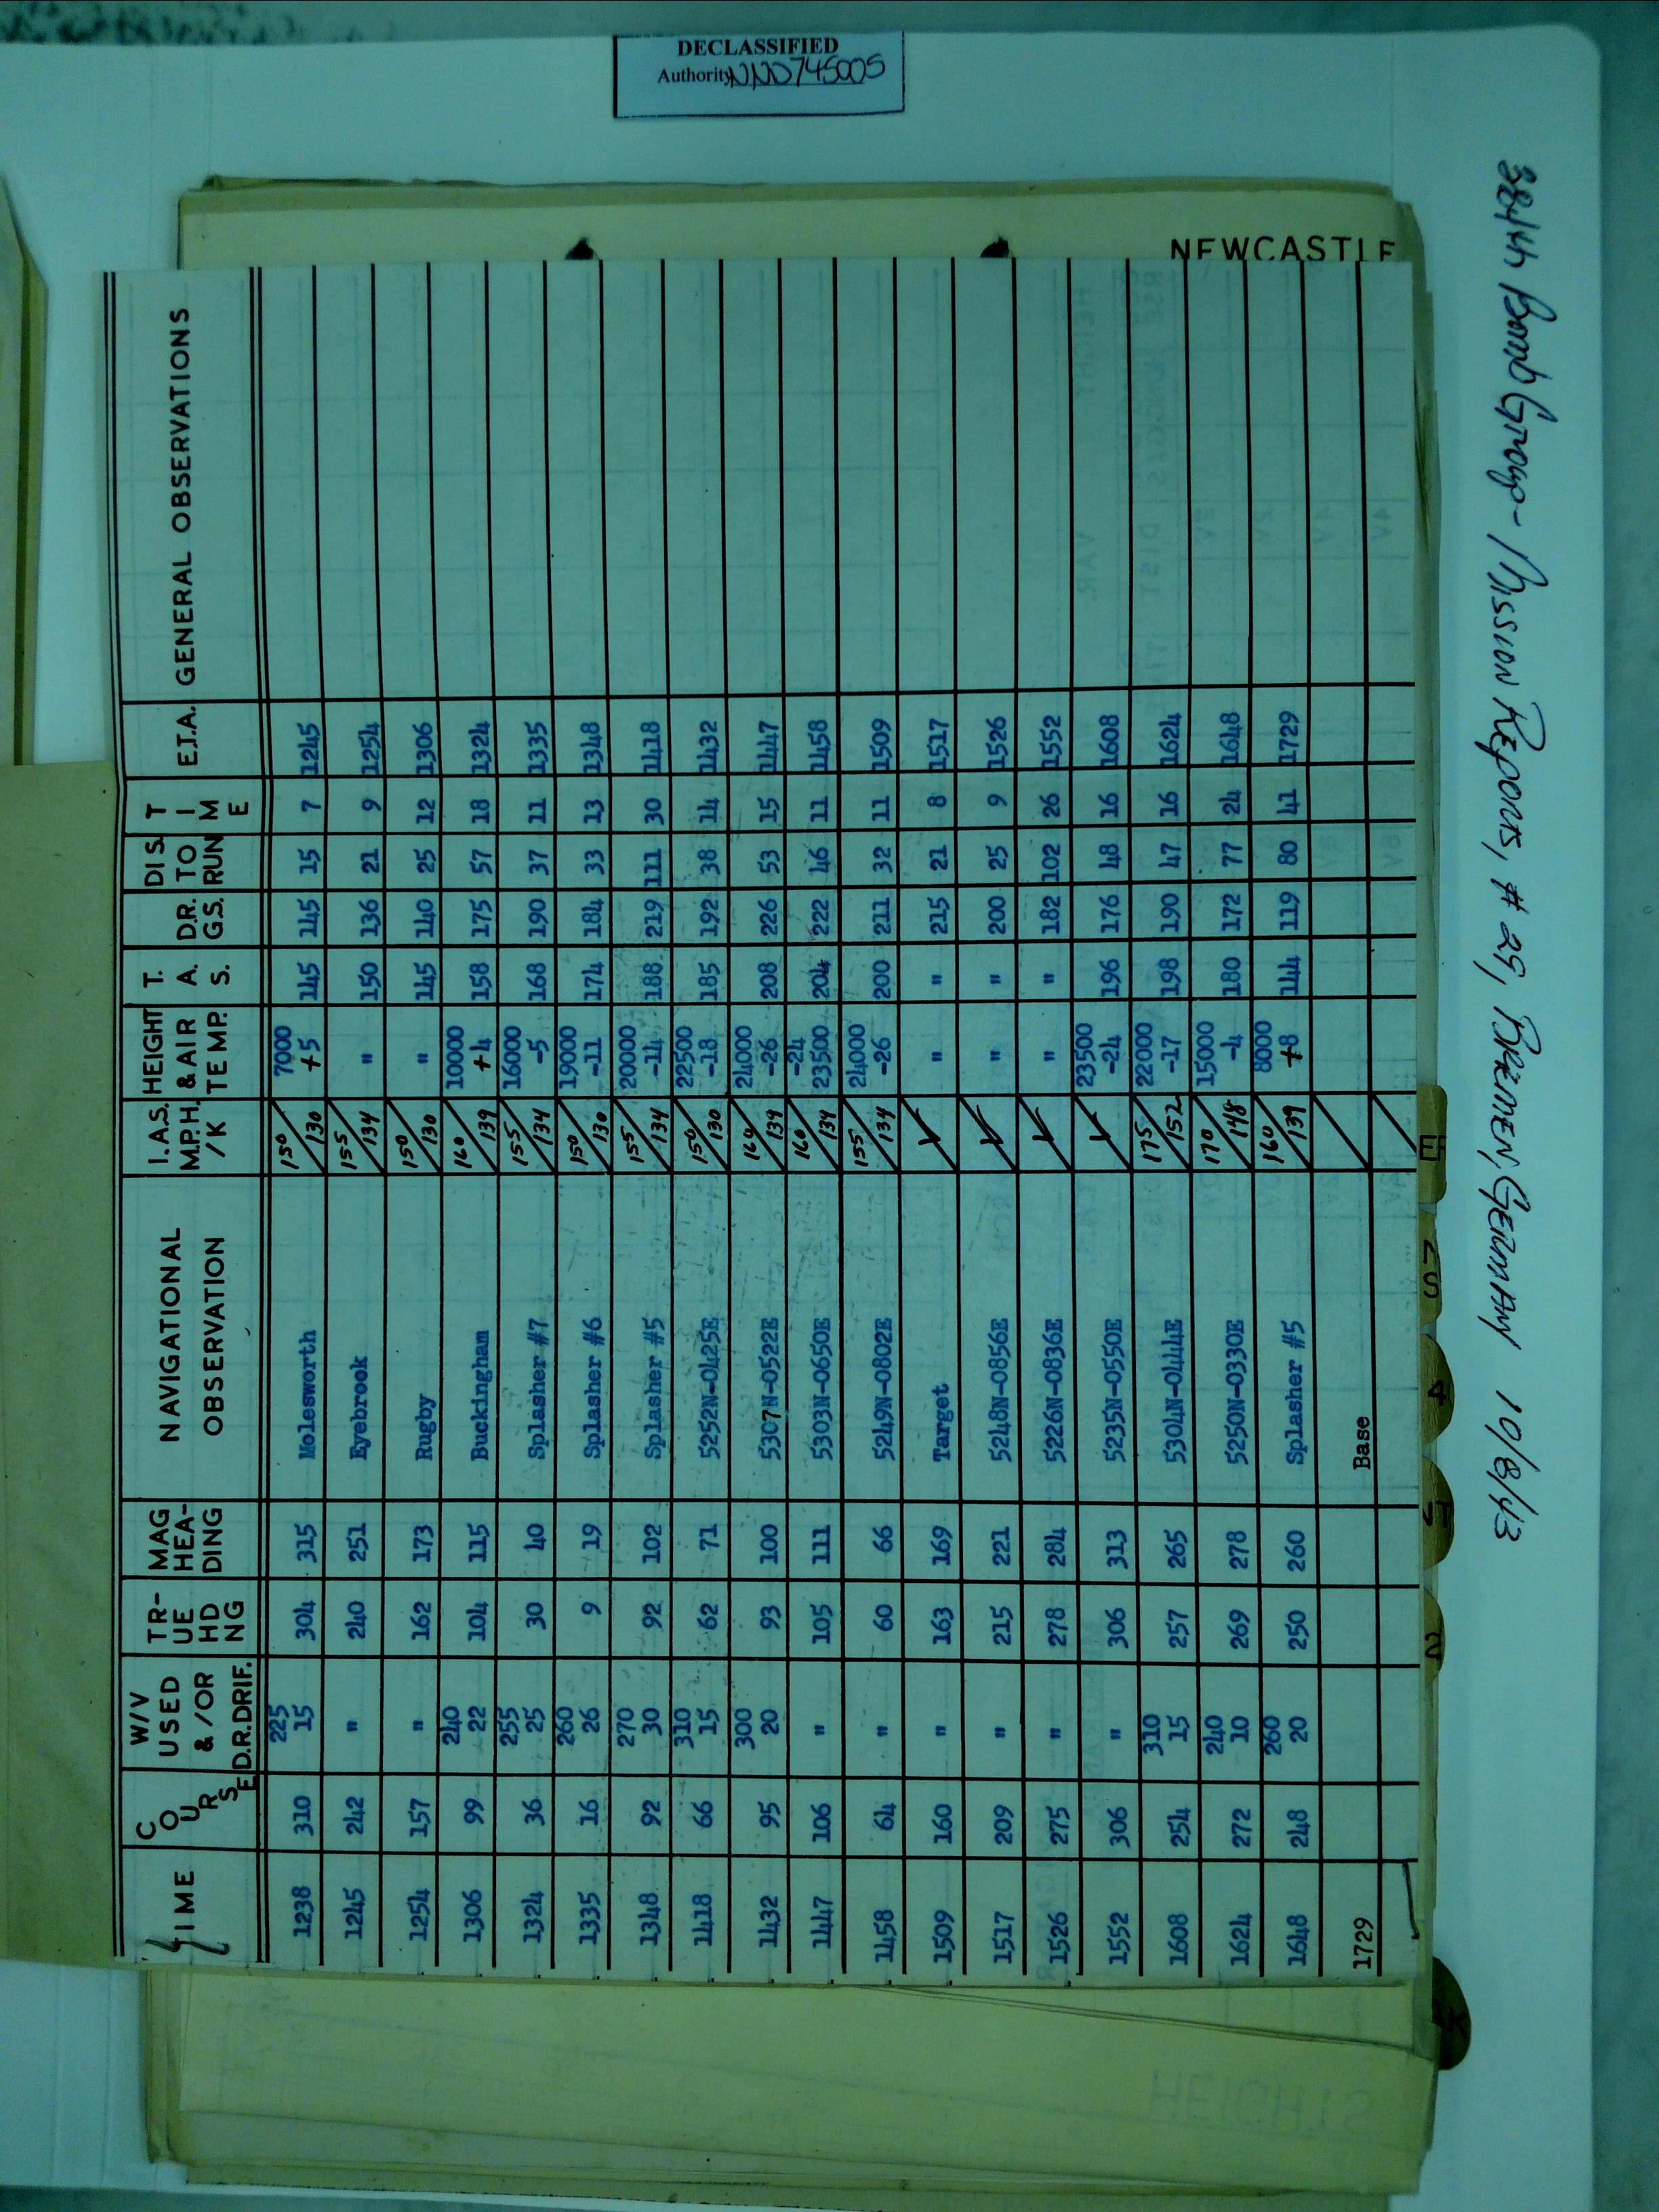 DECLASSIFIED
Authority NND745005
384th Bomb Group - Mission Reports, # 25, Bremen, Germany 10/8/43
NEWCASTLE
TIME COURSE W/V USED & /OR D.R.DRIF. TRUE HDNG MAG HEA-DING NAVIGATIONAL OBSERVATION I.A.S. M.P.H. /K HEIGHT & AIR TEMP. T. A. S. D.R. G.S. DIS. TO RUN TIME E.T.A. GENERAL OBSERVATIONS
1238 310 225 15 304 315 Molesworth 150/130 7000 +5 145 145 15 7 1245
1245 242 " 240 251 Eyebrook 155/134 " 150 136 21 9 1254
1254 157 " 162 173 Rugby 150/130 " 145 140 25 12 1306
1306 99 240 22 104 115 Buckingham 160/139 10000 +4 158 175 57 18 1324
1324 36 255 25 30 40 Splasher #7 155/134 16000 -5 168 190 37 11 1335
1335 16 260 26 9 19 Splasher #6 150/130 19000 -11 174 184 33 13 1348
1348 92 270 30 92 102 Splasher #5 155/134 20000 -14 188 219 111 30 1418
1418 66 310 15 62 71 5252N-0425E 150/130 22500 -18 185 192 38 14 1432
1432 95 300 20 93 100 5307N-0522E 160/139 24000 -26 208 226 53 15 1447
1447 106 " 105 111 5303N-0650E 160/139 -24 23500 204 222 46 11 1458
1458 64 " 60 66 5249N-0802E 155/134 24000 -26 200 211 32 11 1509
1509 160 " 163 169 Target " " 215 21 8 1517
1517 209 " 215 221 5248N-0856E " " 200 25 9 1526
1526 275 " 278 284 5226N-0836E " " 182 102 26 1552
1552 306 " 306 313 5235N-0550E 23500 -24 196 176 48 16 1608
1608 254 310 15 257 265 5304N-0444E 175/152 22000 -17 198 190 47 16 1624
1624 272 240 10 269 278 5250N-0330E 170/148 15000 -4 180 172 77 24 1648
1648 248 260 20 250 260 Splasher #5 160/139 8000 +8 144 119 80 41 1729
1729 Base
HEIGHTS